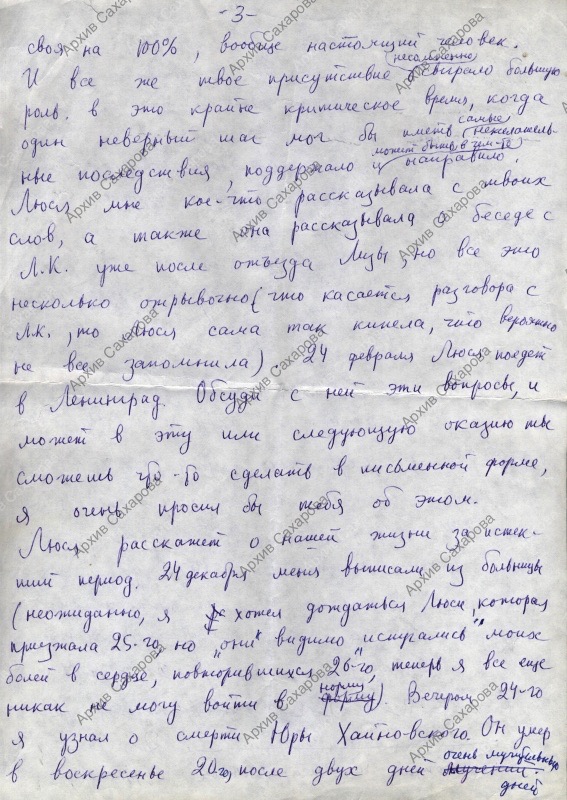 -3-
своя на 100%, вообще настоящий человек.
И все же твое присутствие (несомненно) сыграло большую
роль. в это крайне критическое время, когда
один неверный шаг мог бы иметь самые нежелатель-
ные последствия, поддержало и может быть в чем-то направило.
Люся мне кое-что рассказывала с твоих
слов, а также она рассказывала о беседе с
Л.К. уже после отъезда Лизы, но все это
несколько отрывочно (что касается разговора с
Л.К., то Люся сама так кипела, что вероятно
не все запомнила). 24 февраля Люся поедет
в Ленинград. Обсуди с ней эти вопросы, и
может в эту или следующую оказию ты
сможешь что-то сделать в письменной форме,
я очень просил бы тебя об этом.
Люся расскажет о нашей жизни за истек-
ший период. 24 декабря меня выписали из больницы
(неожиданно, я хотел дождаться Люси, которая
приезжала 25-го, но "они" видимо испугались моих
болей в сердце, повторившихся 26-го, теперь я все еще
никак не могу войти в норму форму). Вечером 24-го
я узнал о смерти Юры Хайновского. Он умер
в воскресенье 20го, после двух дней очень мучительных мучений.
дней
Архив Сахарова
Архив Сахарова
Архив Сахарова
Архив Сахарова
Архив Сахарова
Архив Сахарова
Архив Сахарова
Архив Сахарова
Архив Сахарова
Архив Сахарова
Архив Сахарова
Архив Сахарова